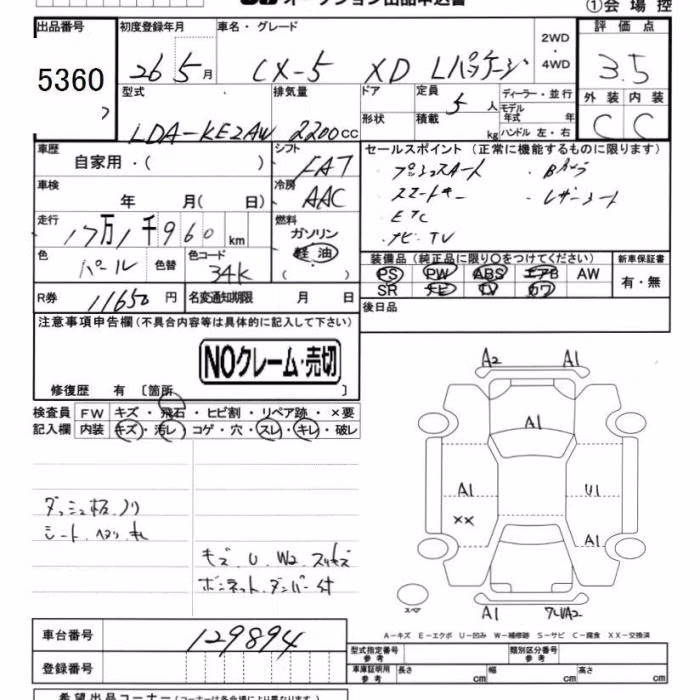 オークション出品申込書
①会場控
出品番号 初度登録年月 車名・グレード 2WD・4WD 評価点
5360 26 5月 CX-5 XD Lパッケージ 3.5
型式 排気量 ドア 定員 5人 ディーラー・並行 外装 内装
形状 積載 kg モデル年式 年式 ハンドル 左・右 C C
LDA-KE2AW 2200cc
車歴 シフト セールスポイント(正常に機能するものに限ります)
自家用・( ) FAT プッシュスタート ・Bカメラ
車検 冷房 スマートキー ・レザーシート
年 月( 日) AAC ・ETC
走行 燃料 ・ナビ・TV
17万1千960km ガソリン
色 色替 色コード 軽油 装備品(純正品に限り○をつけてください) 新車保証書
パール 34K ( ) PS PW ABS エアB AW 有・無
SR ナビ TV カワ
R券 11650円 名変通知期限 月 日 後日品
注意事項申告欄(不具合内容等は具体的に記入して下さい)
NOクレーム・売切
修復歴 有〔箇所 〕
検査員 FW キズ・飛石・ヒビ割・リペア跡・×要
記入欄 内装 キズ・汚レ・コゲ・穴・スレ・キレ・破レ
A2 A1
A1
A1 U1
XX A1
ダッシュ板ノリ
シート
キズ.U.W2.
ボンネットダンパー付
スペア A1 A2
A-キズ E-エクボ U-凹み W-補修跡 S-サビ C-腐食 XX-交換済
車台番号 129894 型式指定番号 参考 類別区分番号 参考
登録番号 車庫証明用 参考 長さ cm 幅 cm 高さ cm
希望出品コーナー(コーナーは各会場により異なります)